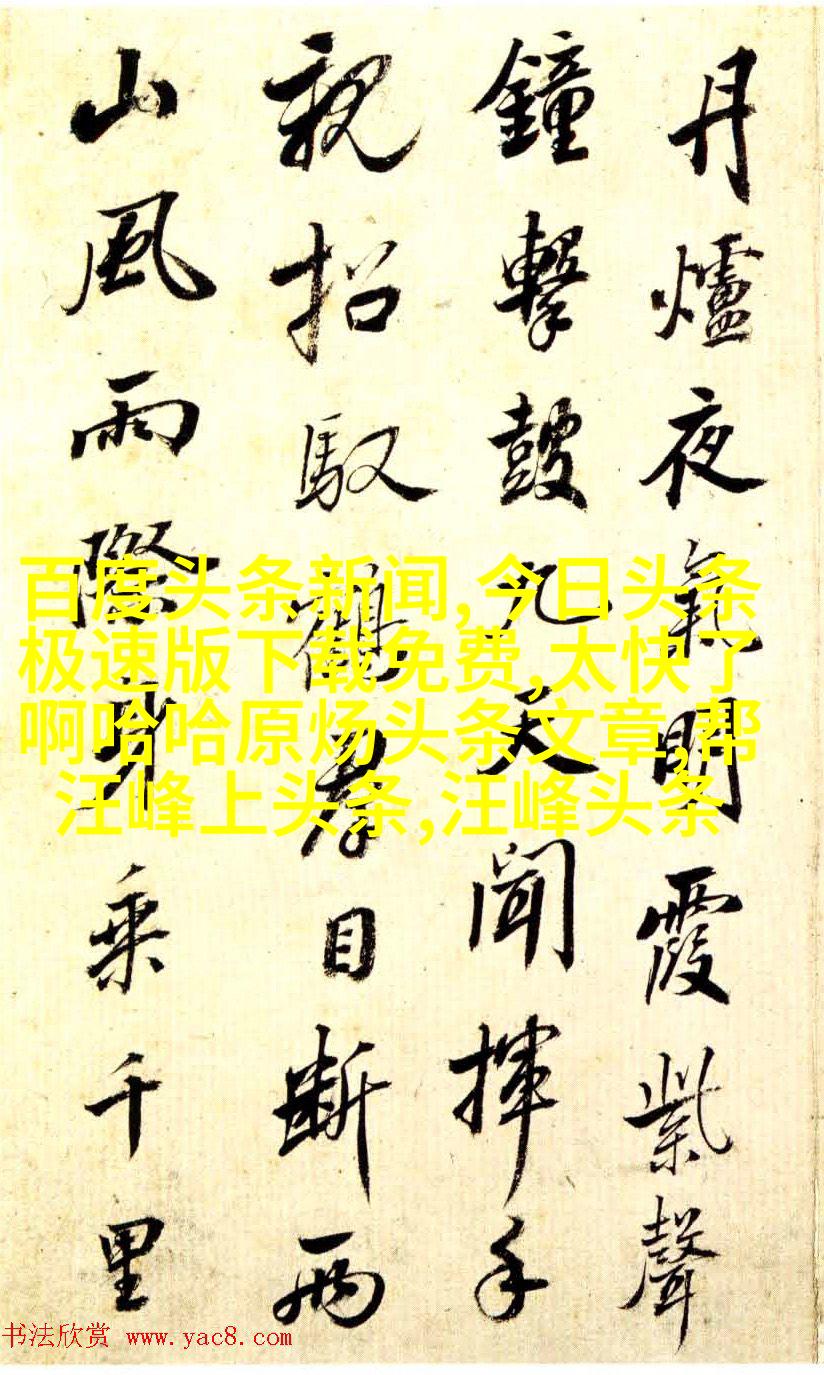 丹爐夜氣明霞紫聲
鐘擊鼓九天聞揮手
親招馭鶴君目斷兩
山風雨際身乘千里
百度头条新闻,今日头条
极速版下载免费,太快了
啊哈哈原炀头条文章,帮
汪峰上头条,汪峰头条
书法欣赏 www.yac8.com